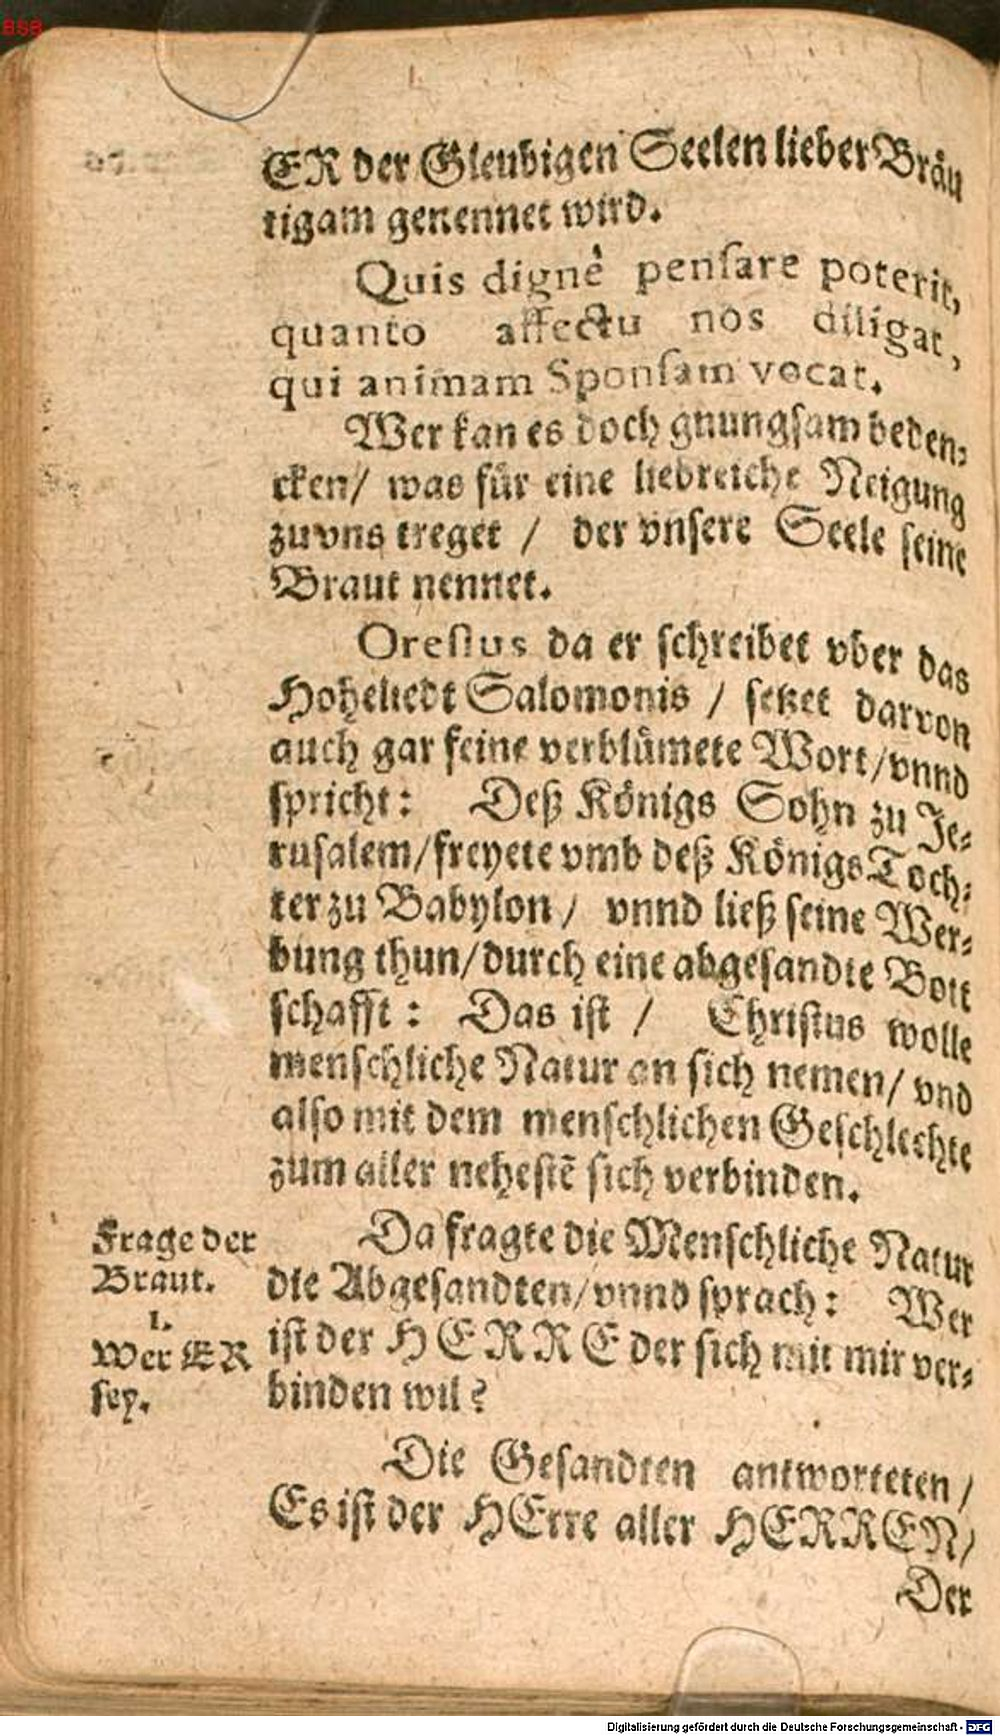 BSB
ER der Gleubigen Seelen lieber Bräu
tigam genennet wird.
Quis dignè pensare poterit,
quanto affectu nos diligat,
qui animam Sponsam vocat.
Wer kan es doch gnungsam beden-
cken/ was für eine liebreiche Neigung
zu vns treget / der vnsere Seele seine
Braut nennet.
Oresius da er schreibet vber das
Hoheliedt Salomonis / setzet darvon
auch gar feine verblümete Wort/vnnd
spricht: Deß Königs Sohn zu Je-
rusalem/freyete vmb deß Königs Toch-
ter zu Babylon/ vnnd ließ seine Wer-
bung thun/durch eine abgesandte Bott
schafft: Das ist / Christus wolle
menschliche Natur an sich nemen/ vnd
also mit dem menschlichen Geschlechte
zum aller nehestē sich verbinden.
Frage der
Braut.
1.
Wer ER
sey.
Da fragte die Menschliche Natur
die Abgesandten/vnnd sprach: Wer
ist der HERRE der sich mit mir ver-
binden wil?
Die Gesandten antworteten/
Es ist der HErre aller HERREN/
Der
Digitalisierung gefördert durch die Deutsche Forschungsgemeinschaft - DFG